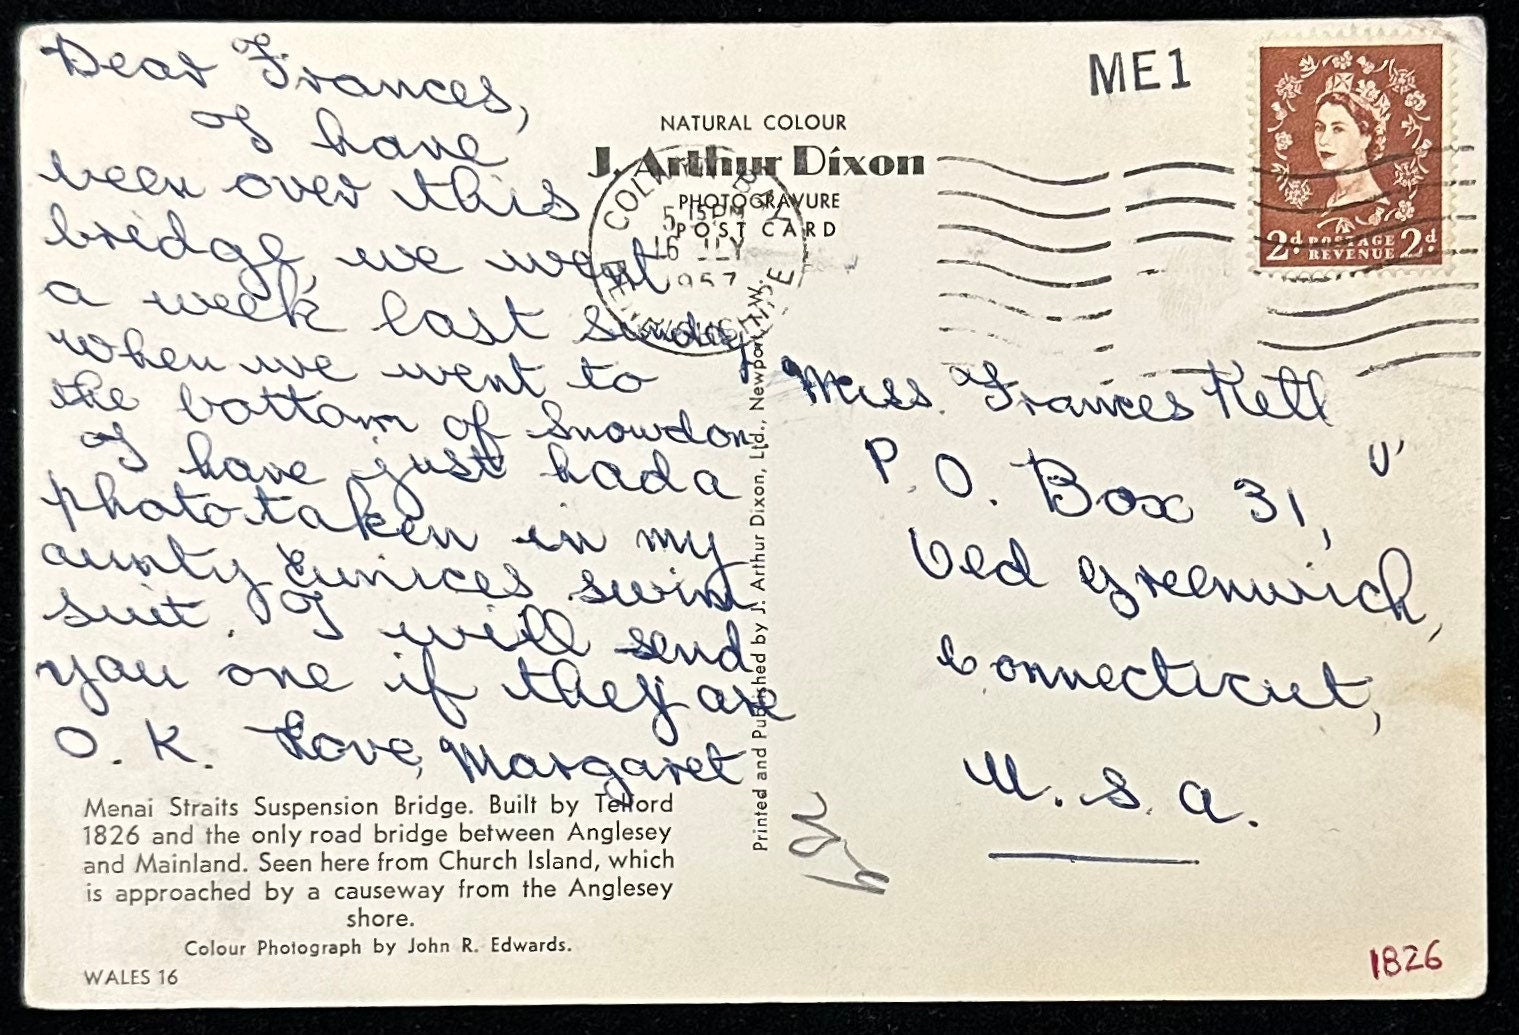 Dear Frances,
I have
been over this
bridge, we went
a week last Sunday
when we went to
the bottom of Snowdon,
I have just had a
photo taken in my
aunty Eunices swim
suit. I will send
you one if they are
O. K. Love, Margaret
Menai Straits Suspension Bridge. Built by Telford
1826 and the only road bridge between Anglesey
and Mainland. Seen here from Church Island, which
is approached by a causeway from the Anglesey
shore.
Colour Photograph by John R. Edwards.
WALES 16
NATURAL COLOUR
J. Arthur Dixon
PHOTOGRAVURE
POST CARD
COLWYN BAY
5 15PM
16 JLY
1957
DENBIGHSHIRE
Printed and Published by J. Arthur Dixon, Ltd., Newport I.W.
ME1
2d POSTAGE 2d
REVENUE
Miss. Frances Kell
P. O. Box 31,
Old Greenwich,
Connecticut,
U. S. A.
1826